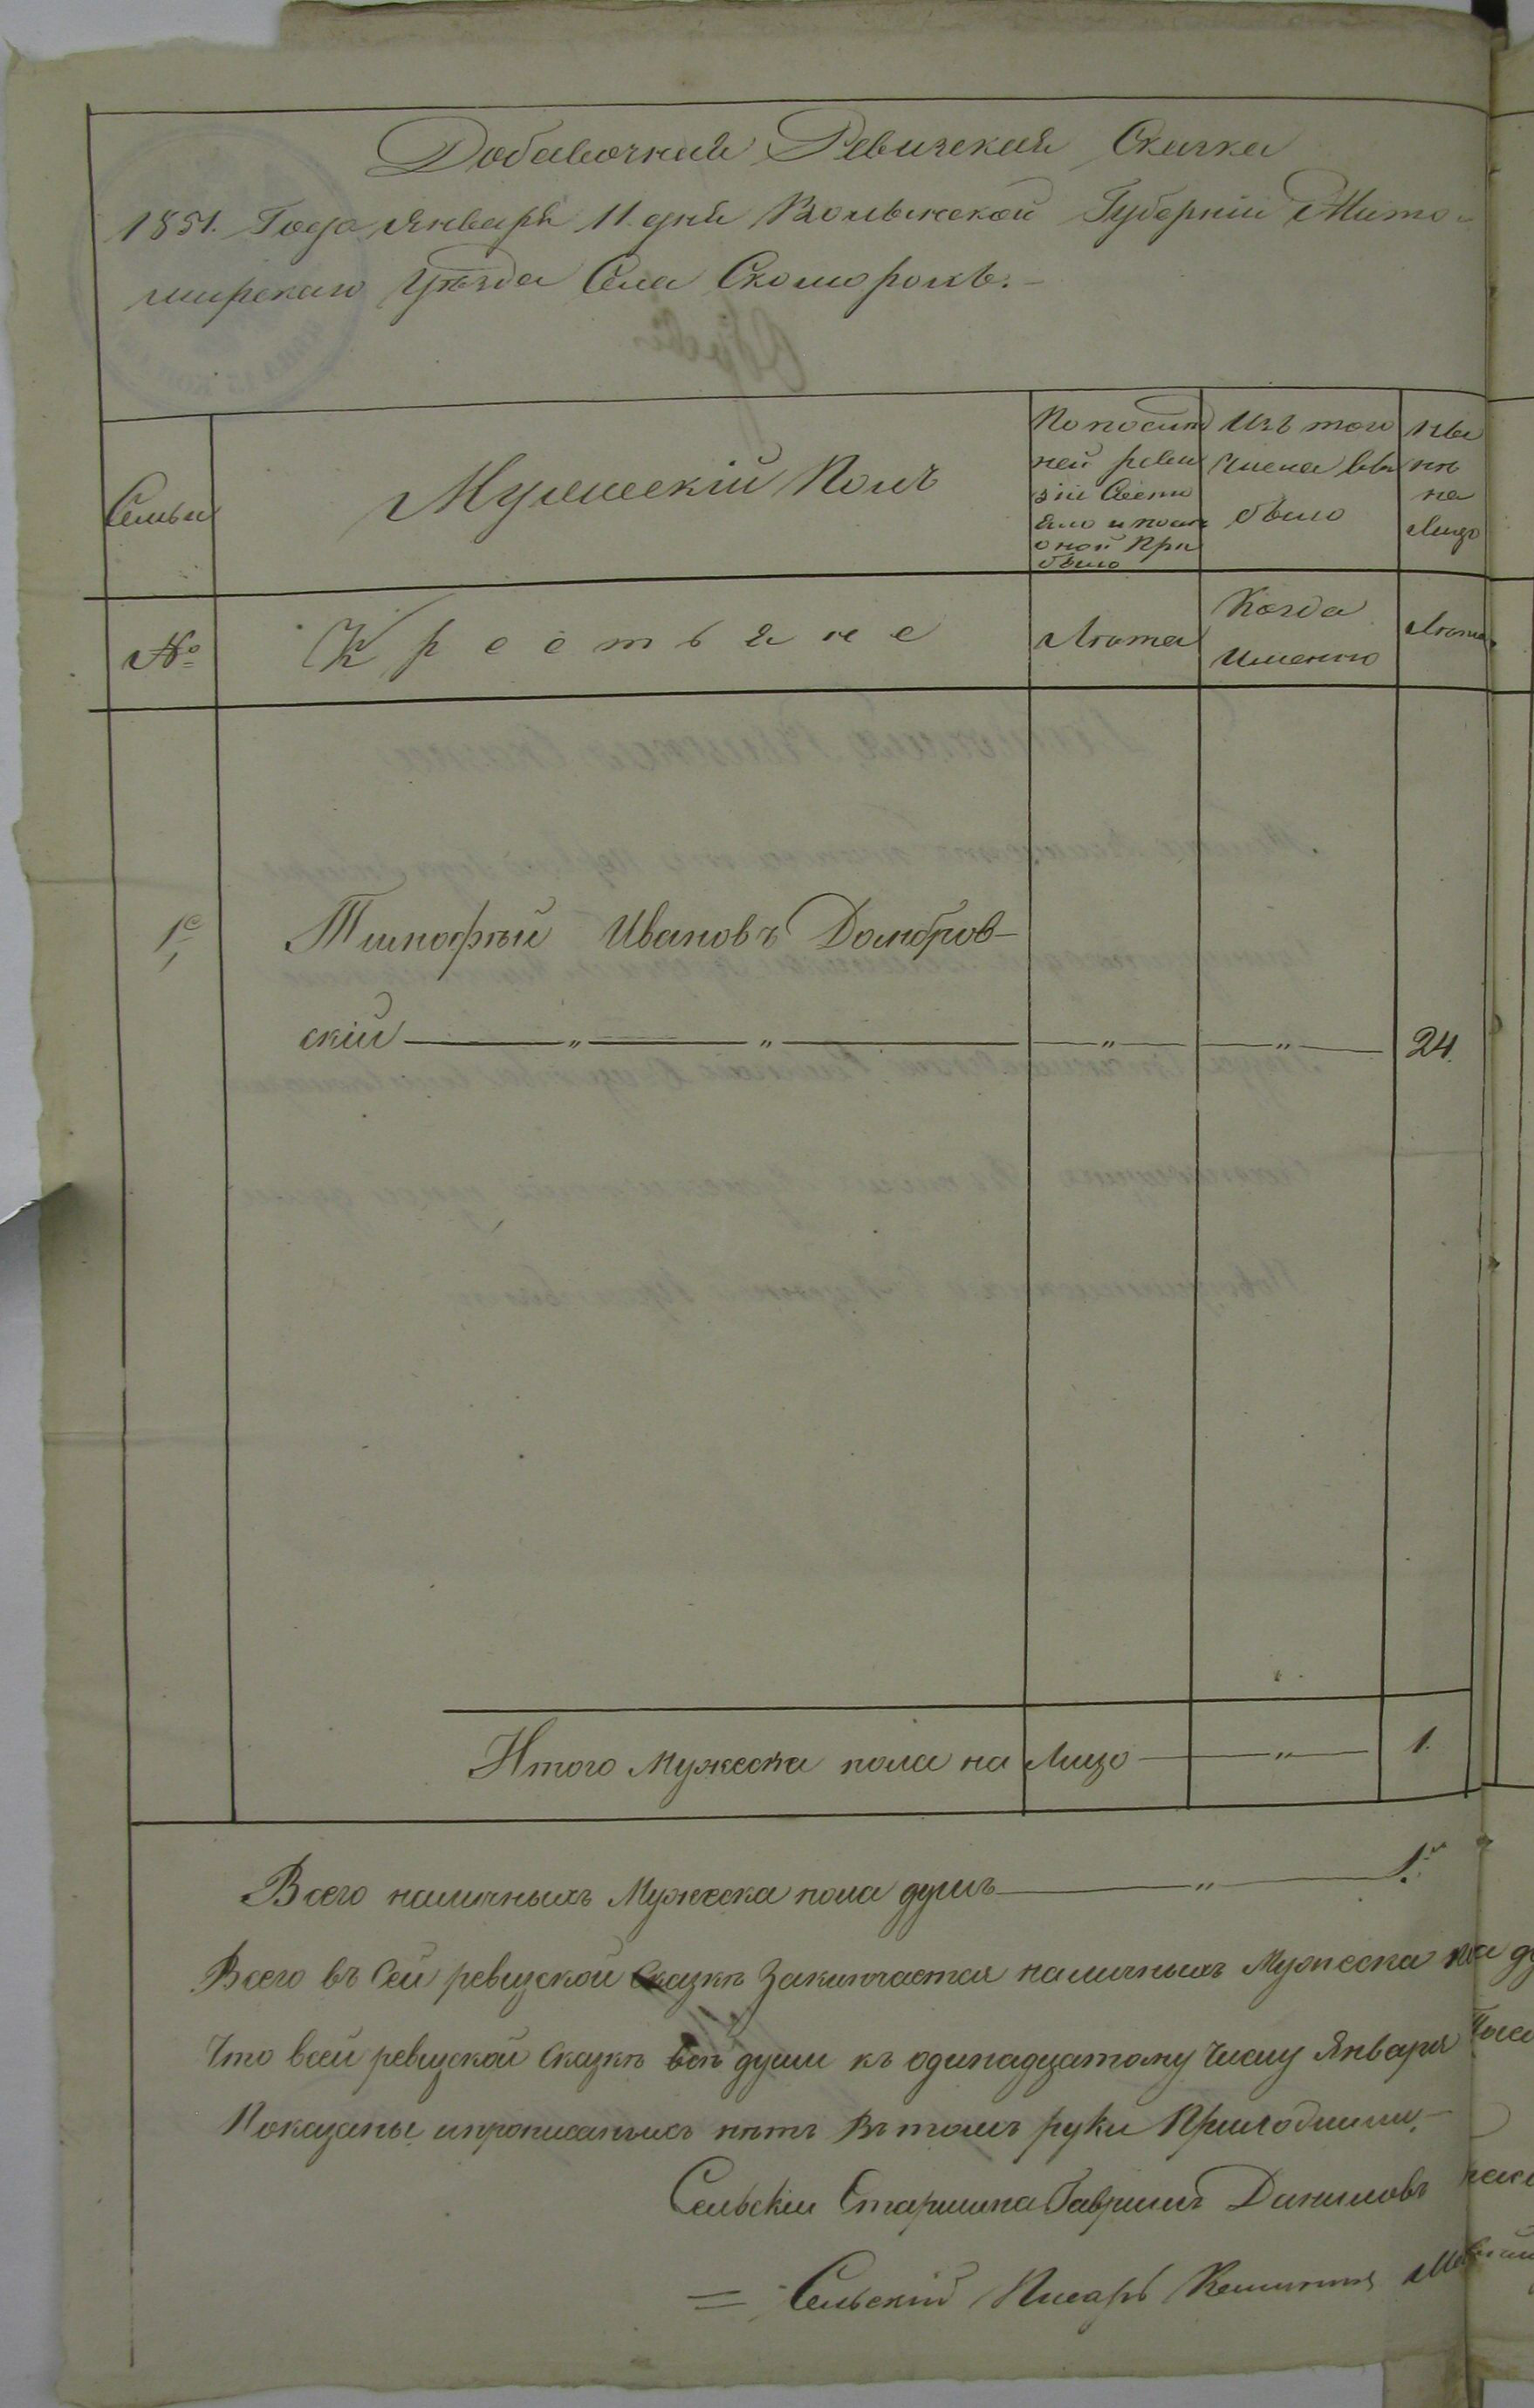 Добавочная Ревизская Сказка
1851. Года Января 11. дня Волынской Губерніи Жито-
мирскаго Уѣзда Села Скоморохъ.-
Семьи
Мужескій Полъ
По послѣд
ней реви
зіи Состо
яло и послѣ
оной При
было
Изъ того
числа вы
было
ны
нѣ
на
Лицо
№
Крестьяне
Лѣта
Когда
именно
Лѣта
1
Тимофѣй Ивановъ Домбров-
скій — „ — „ — „ — „ — 24.
Итого Мужеска пола на Лицо — „ — 1.
Всего наличныхъ Мужеска пола душъ — „ — 1.
Всего въ Сей ревизской Сказкѣ Заключается наличныхъ Мужеска
Что всей ревизской Сказкѣ всѣ души къ одинадцатому числу Января
Показаны, и прописаныхъ нѣтъ Въ томъ руки Приложили.-
Сельскій Старшина Гаврилъ Даниловъ
= Сельскій Писарь